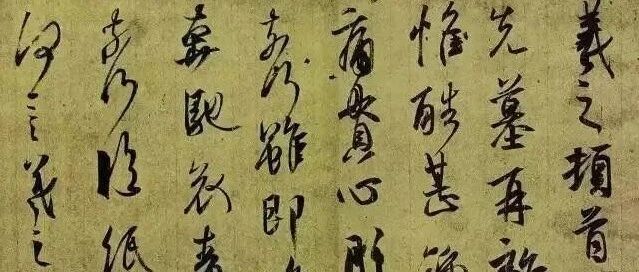 羲之頓首
先墓再離
惟酷甚號
痛貫心肝
奈何雖即
奔馳哀毒
奈何臨紙
何言羲之